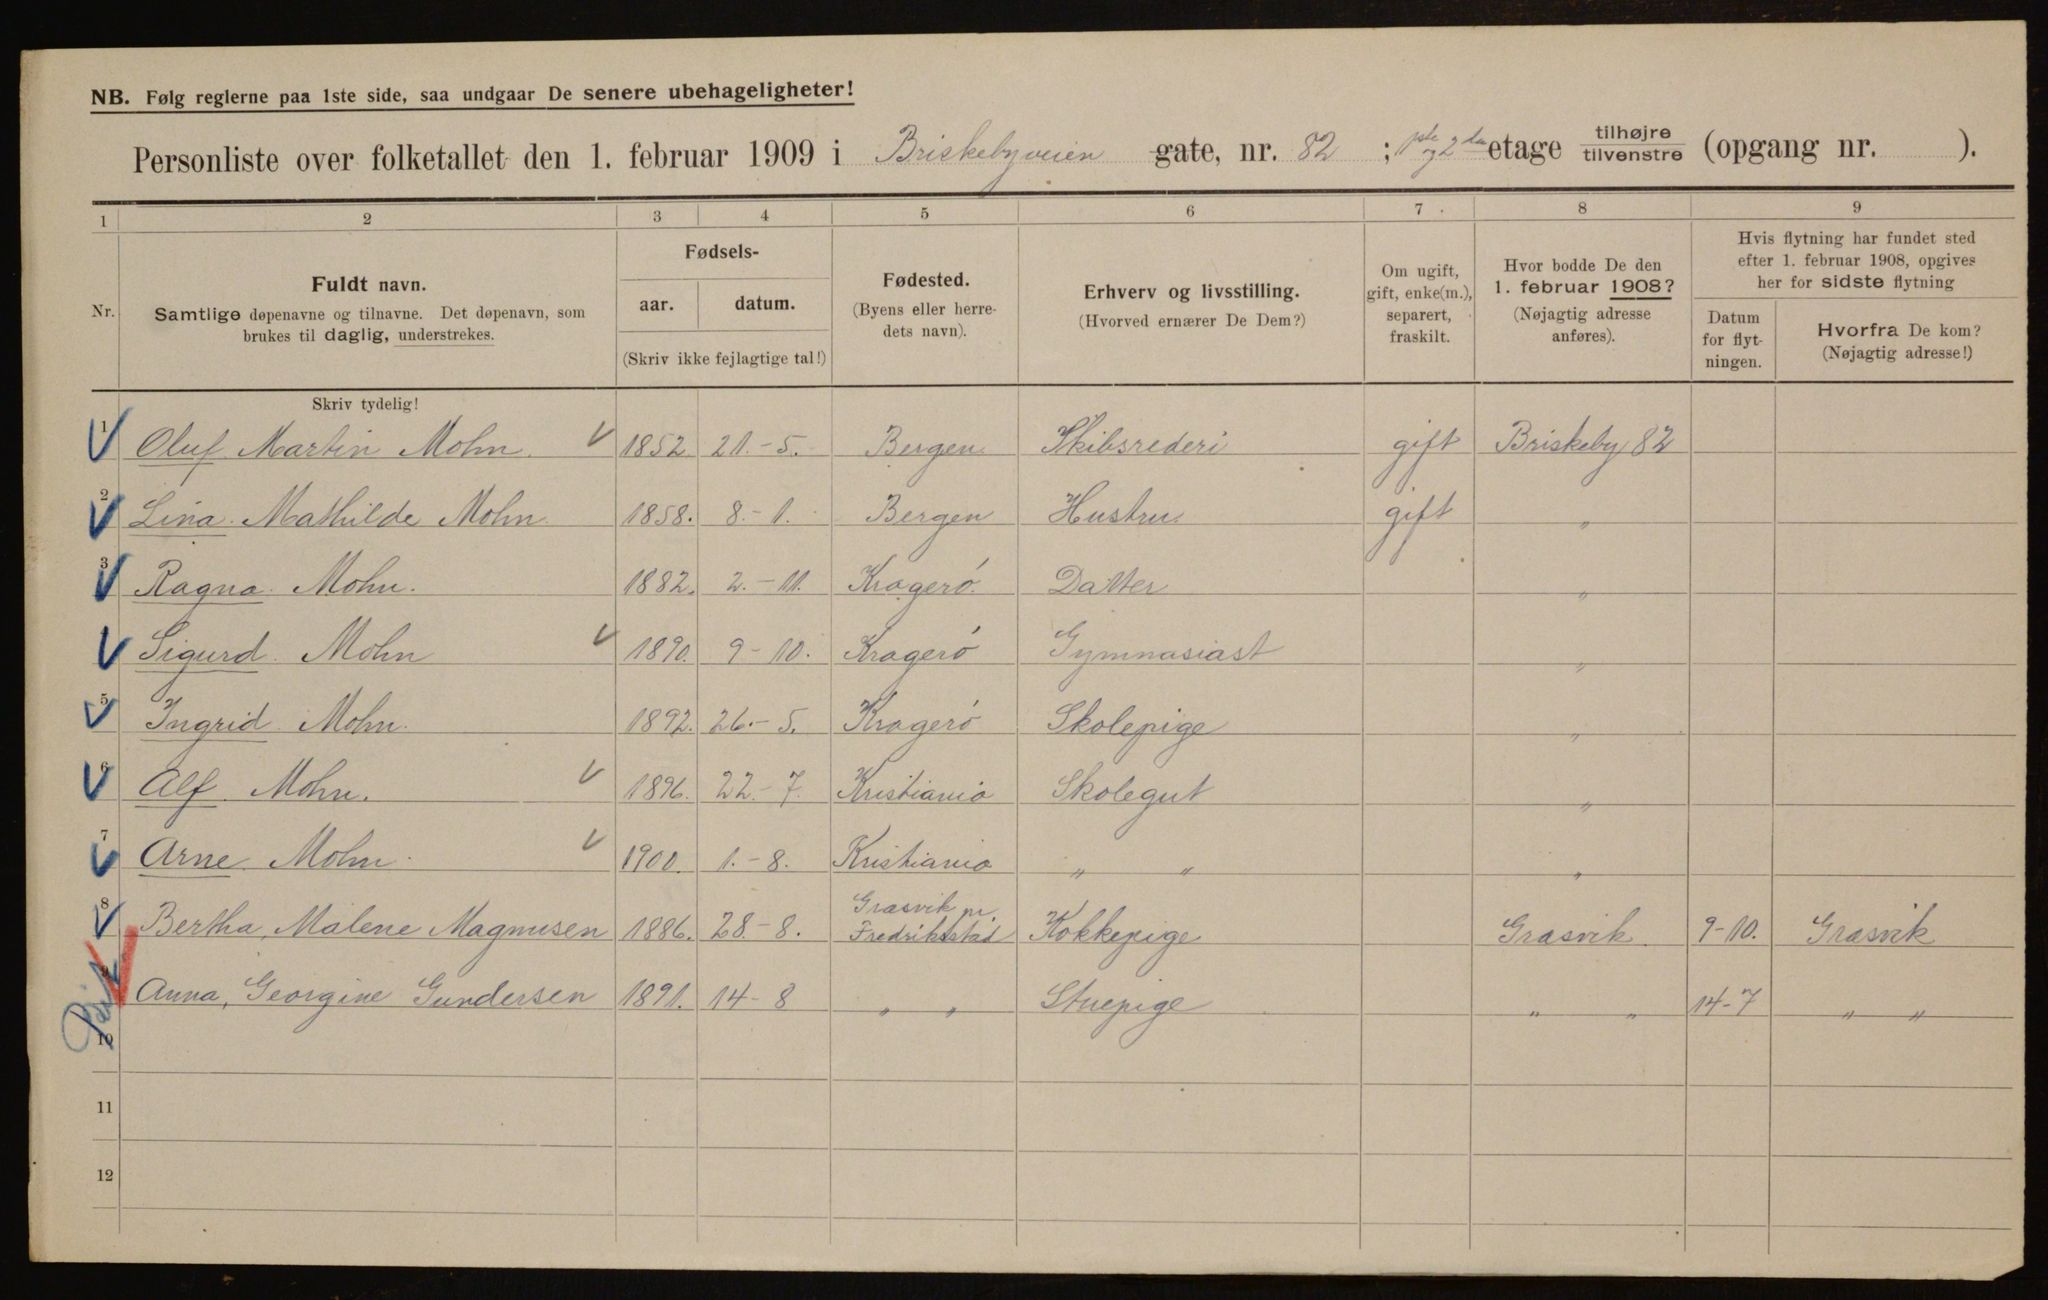 NB. Følg reglerne paa 1ste side, saa undgaar De senere ubehageligheter!
Personliste over folketallet den 1. februar 1909 i Briskebyveien gate, nr. 82 ; 1ste og 2den etage tilhøjre tilvenstre (opgang nr. ).
1 2 3 4 5 6 7 8 9
Nr.
Fuldt navn.
Samtlige døpenavne og tilnavne. Det døpenavn, som
brukes til daglig, understrekes.
Fødsels-
aar. datum.
(Skriv ikke fejlagtige tal!)
Fødested.
(Byens eller herre-
dets navn).
Erhverv og livsstilling.
(Hvorved ernærer De Dem?)
Om ugift,
gift, enke(m.),
separert,
fraskilt.
Hvor bodde De den
1. februar 1908?
(Nøjagtig adresse
anføres).
Hvis flytning har fundet sted
efter 1. februar 1908, opgives
her for sidste flytning
Datum
for flyt-
ningen.
Hvorfra De kom?
(Nøjagtig adresse!)
Skriv tydelig!
1 Oluf Martin Mohn. 1852 21.-5. Bergen Skibsrederi gift Briskeby 82
2 Lina Mathilde Mohn 1858. 8.-1. Bergen Hustru. gift „
3 Ragna Mohn. 1882. 2.-11. Kragerø Datter „
Sigurd Mohn 1890. 9-10. Kragerø Gymnasiast „
5 Ingrid Mohn. 1892. 26.-5. Kragerø Skolepige „
6 Alf Mohn. 1896. 22.-7. Kristiania Skolegut „
7 Arne Mohn. 1900. 1.-8. Kristiania „ „ „
8 Bertha, Malene Magnusen 1886. 28.-8. Græsvik pr. Fredriksstad Kokkepige Græsvik 9-10. Græsvik
9 Anna, Georgine Gundersen 1891. 14-8 „ „ Stuepige „ „ 14-7 „ „
10
11
12